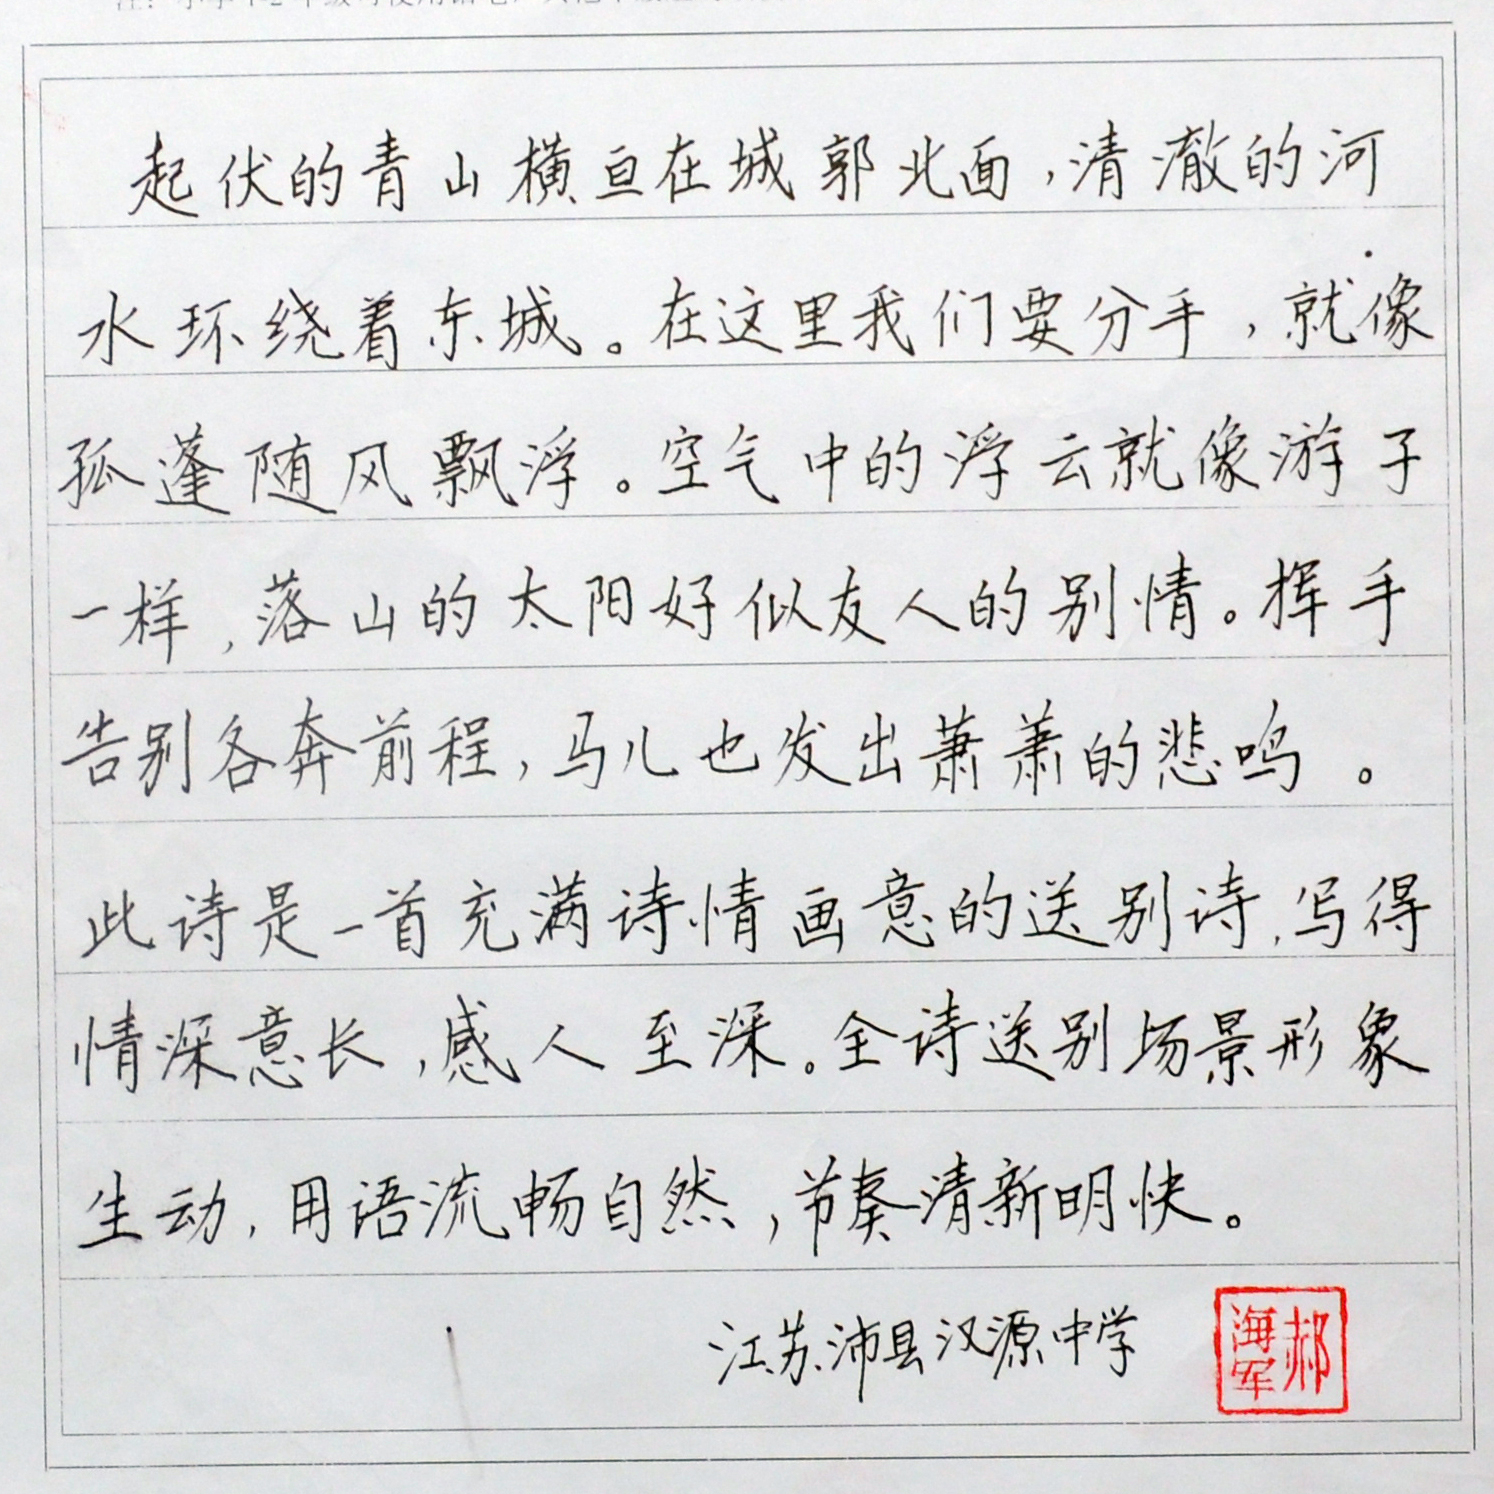 起伏的青山横亘在城郭北面，清澈的河
水环绕着东城。在这里我们要分手，就像
孤蓬随风飘浮。空气中的浮云就像游子
一样，落山的太阳好似友人的别情。挥手
告别各奔前程，马儿也发出萧萧的悲鸣。
此诗是一首充满诗情画意的送别诗，写得
情深意长，感人至深。全诗送别场景形象
生动，用语流畅自然，节奏清新明快。
江苏沛县汉源中学
郝海军